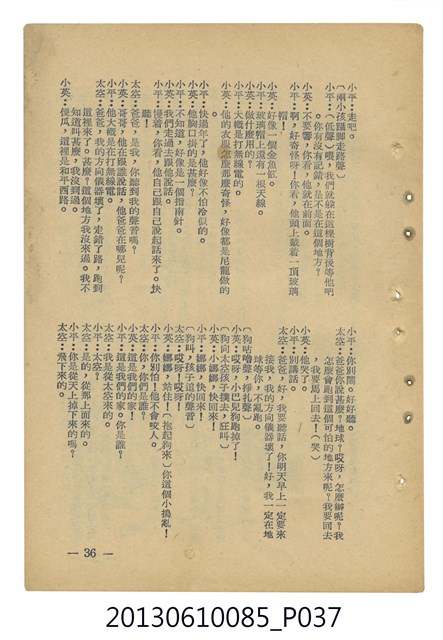 小平：走吧。
〔兩小孩躡脚走路聲〕
小平：（低聲）噢，我們就躲在這棵樹背後等他吧
。你有沒有記錯，是不是在這個地方？
小英：不要響，你看，他就在前面。
小平：啊，好奇怪呀！你看，他頭上戴着一頂玻璃
帽！
小英：好像一個金魚缸。
小平：玻璃帽上還有一根天線。
小英：做什麼用的？
小平：大概是打無線電的。
小英：他的衣服怎麼那麼奇怪，好像都是尼龍做的
。
小平：快過年了，他好像不怕冷似的。
小英：他胸口掛的是甚麼？
小平：不知道，好像是一個指南針。
小英：我們走過去跟他說話。
小平：慢着，你看，他自己跟自己說起話來了。快
聽！
太空：爸爸，是我，你聽到我的聲音嗎？
小英：哥哥，他在跟誰說話，他爸爸在哪兒呢？
小平：他大概是在打無線電。
太空：爸爸，我的方向儀器壞了，走錯了路，跑到
這裡來了。甚麼？這個地方我沒來過。我不
知道叫甚麼，我沒到過。
小英：傻瓜，這裡是和平西路。
小平：你別鬧。好好聽。
太空：爸爸你說甚麼？地球？哎呀，怎麼辦呢？我
怎麼會跑到這個可怕的地方來呢？我要回去
，我要馬上回去！（哭）
小英：他哭了。
小平：別講話。
太空：爸爸，好，我要聽話，你明天早上一定要來
接我，我的方向儀器壞了！好，我一定在地
球等你，不亂跑。
〔狗咕嚕聲，掙扎聲〕
小英：哎呀，小巴兒狗跑掉了！
〔狗向太空孩子撲去，狂叫〕
小英：小娜娜，快回來！
小平：娜娜，快回來！
〔狗叫，孩子逃的聲音〕
太空：哎呀，哎呀！
小英：娜娜，站住！〔抱起狗來〕你這個小搗亂！
小平：你別怕！他不會咬人。
太空：你，你們是誰？
小英：這是我們的家！
小平：這是我們的家。你是誰？
太空：我是從太空來的。
小平：太空？
太空：是的，從那上面來的。
小平：你是從天上掉下來的嗎？
太空：飛下來的。
— 36 —
20130610085_P037